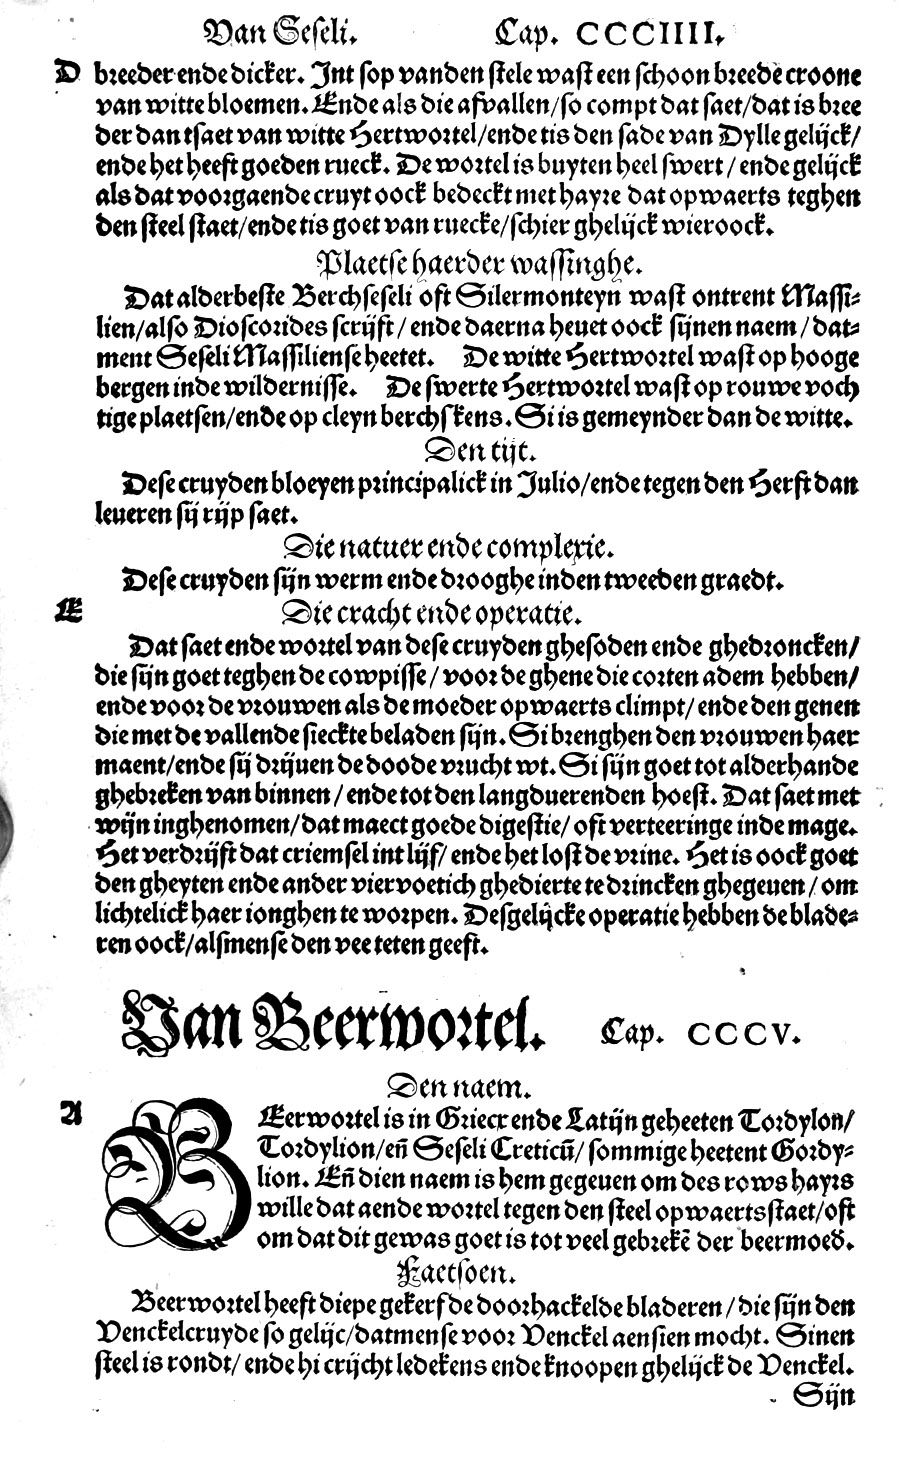 Van Seseli. Cap. CCCIIII.
D breeder ende dicker. Int sop vanden stele wast een schoon breede croone
van witte bloemen. Ende als die afvallen/so compt dat saet/dat is bree
der dan tsaet van witte Hertwortel/ende tis den sade van Dylle gelijck/
ende het heeft goeden rueck. De wortel is buyten heel swert/ende gelijck
als dat voorgaende cruyt oock bedeckt met hayre dat opwaerts teghen
den steel staet/ende tis goet van ruecke/schier ghelijck wieroock.
Plaetse haerder wassinghe.
Dat alderbeste Berchseseli oft Silermonteyn wast ontrent Massi-
lien/also Dioscorides scrijft/ende daerna heuet oock sijnen naem/dat-
ment Seseli Massiliense heetet. De witte Hertwortel wast op hooge
bergen inde wildernisse. De swerte Hertwortel wast op rouwe voch
tige plaetsen/ende op cleyn berchskens. Si is gemeynder dan de witte.
Den tijt.
Dese cruyden bloeyen principalick in Julio/ende tegen den Herfst dan
leueren sij rijp saet.
Die natuer ende complexie.
Dese cruyden sijn werm ende drooghe inden tweeden graedt.
E Die cracht ende operatie.
Dat saet ende wortel van dese cruyden ghesoden ende ghedroncken/
die sijn goet teghen de cowpisse/voor de ghene die corten adem hebben/
ende voor de vrouwen als de moeder opwaerts climpt/ende den genen
die met de vallende sieckte beladen sijn. Si brenghen den vrouwen haer
maent/ende sij drijuen de doode vrucht wt. Si sijn goet tot alderhande
ghebreken van binnen/ende tot den langduerenden hoest. Dat saet met
wijn inghenomen/dat maect goede digestie/oft verteeringe inde mage.
Het verdrijft dat criemsel int lijf/ende het lost de vrine. Het is oock goet
den gheyten ende ander viervoetich ghedierte te drincken ghegeuen/om
lichtelick haer ionghen te worpen. Desgelijcke operatie hebben de blade-
ren oock/alsmense den vee teten geeft.
Van Beerwortel. Cap. CCCV.
Den naem.
A BEerwortel is in Griecx ende Latijn geheeten Tordylon/
Tordylion/eñ Seseli Creticũ/sommige heetent Gordy-
lion. Eñ dien naem is hem gegeuen om des rows hayrs
wille dat aende wortel tegen den steel opwaerts staet/oft
om dat dit gewas goet is tot veel gebrekẽ der beermoed.
Faetsoen.
Beerwortel heeft diepe gekerfde doorhackelde bladeren/die sijn den
Venckelcruyde so gelijc/datmense voor Venckel aensien mocht. Sinen
steel is rondt/ende hi crijcht ledekens ende knoopen ghelijck de Venckel.
Sijn